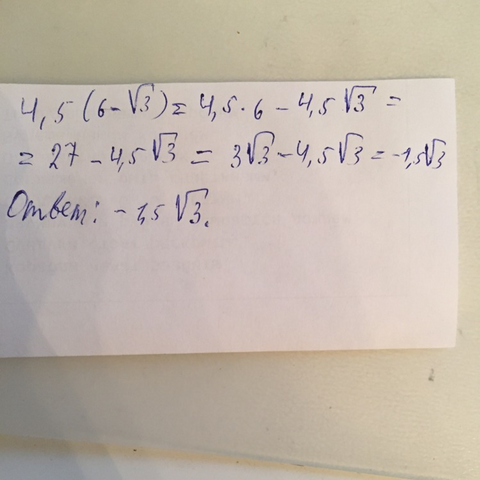 4,5 (6 - √3) = 4,5 · 6 - 4,5 √3 =
= 27 - 4,5 √3 = 3√3 - 4,5 √3 = -1,5√3
Ответ: -1,5 √3.